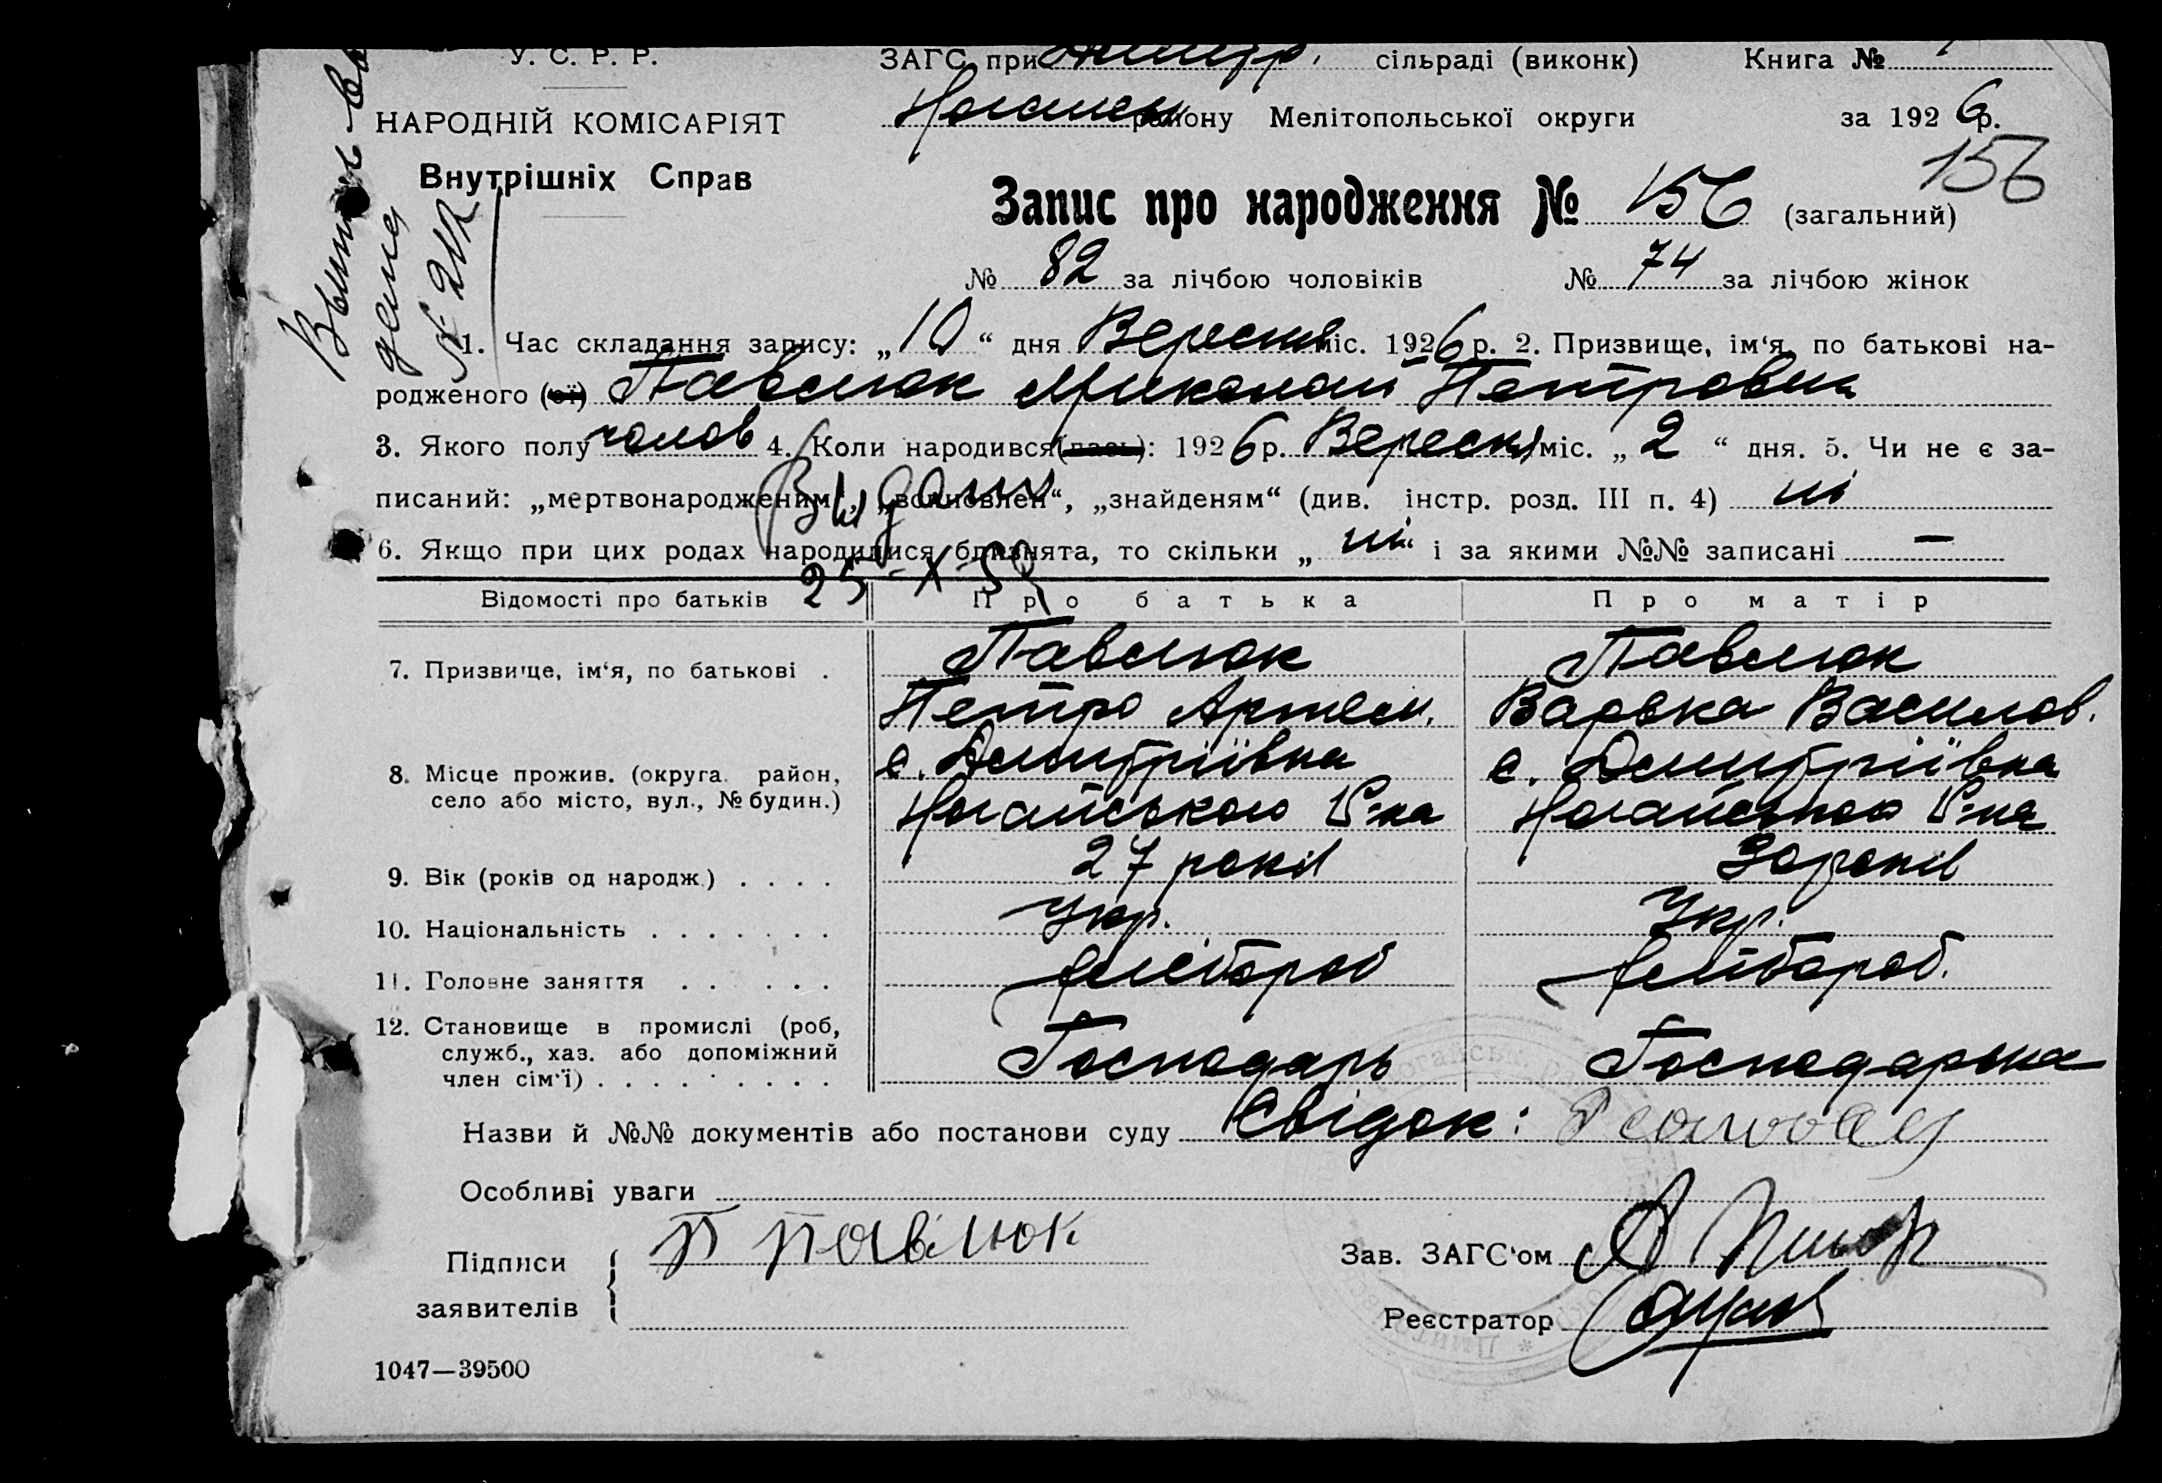 У. С. Р. Р.
НАРОДНІЙ КОМІСАРІЯТ
Внутрішніх Справ
ЗАГС при Дмитр. сільраді (виконк) Книга №
району Мелітопольської округи за 1926 р.
156
Запис про народження № 156 (загальний)
№ 82 за лічбою чоловіків № 74 за лічбою жінок
1. Час складання запису: „10“ дня Вересня міс. 1926 р. 2. Призвище, ім‘я, по батькові на-
родженого (ої) Павлюк Миколай Петрович
3. Якого полу чолов 4. Коли народився (лась): 1926 р. Вересня міс. „2“ дня. 5. Чи не є за-
писаний: „мертвонародженим“, „знайденям“ (див. інстр. розд. III п. 4) ні
6. Якщо при цих родах народилися близнята, то скільки „ні“ і за якими №№ записані —
Выдан
25-X-50
Відомості про батьків Про батька Про матір
7. Призвище, ім‘я, по батькові . Павлюк Павлюк
Петро Артем. Варька Василов.
8. Місце прожив. (округа, район, с. Дмитріївка с. Дмитріївка
село або місто, вул., № будин.) Ногайського Р-на Ногайського Р-на
9. Вік (років од народж.) . . . . 27 років 30 років
10. Національність . . . . . . . Укр. Укр.
11. Головне заняття . . . . . . хлібороб хлібороб.
12. Становище в промислі (роб, Господарь Господарька
служб., хаз. або допоміжний
член сім‘ї) . . . . . . . . .
Назви й №№ документів або постанови суду Свідок:
Особливі уваги
Підписи П Павлюк
заявителів
Зав. ЗАГС‘ом
Реєстратор
1047—39500